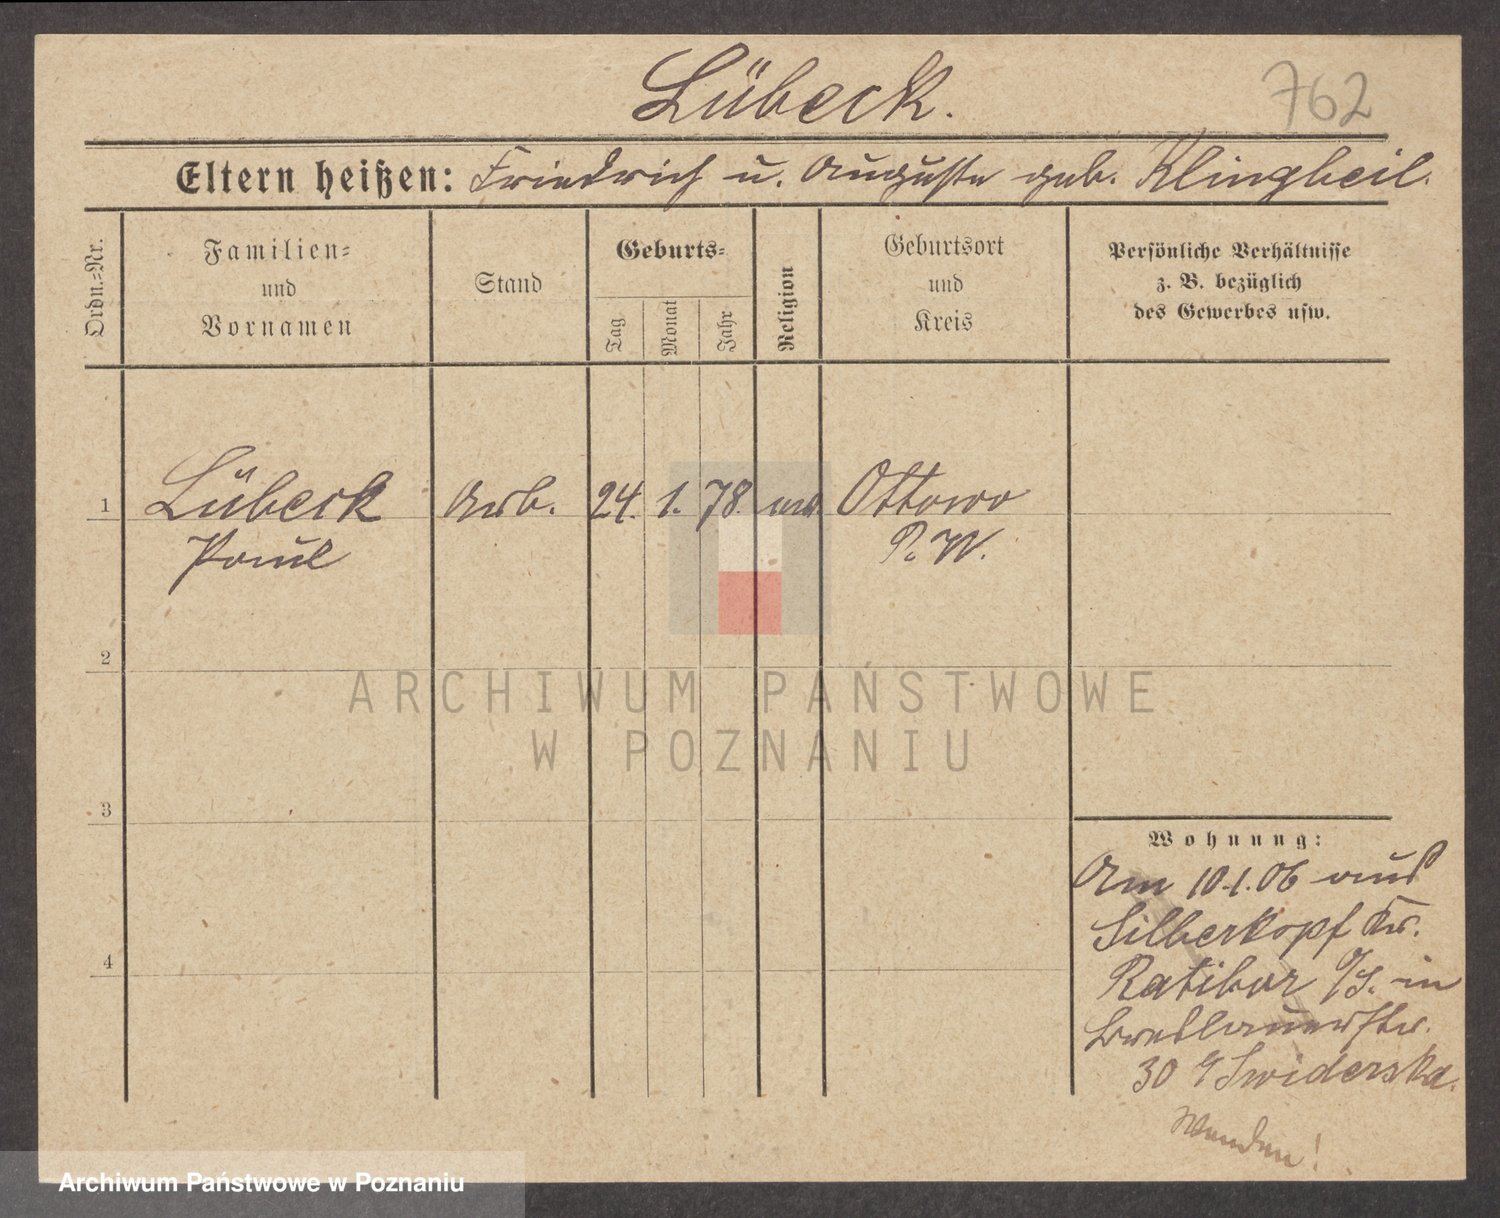 Lübeck.
762
Eltern heißen: Friedrich u. Auguste geb. Klingbeil.
Ordn.-Nr.
Familien-
und
Vornamen
Stand
Geburts-
Tag
Monat
Jahr
Religion
Geburtsort
und
Kreis
Persönliche Verhältnisse
z. B. bezüglich
des Gewerbes usw.
1
Lübeck Arb. 24. 1. 78. ev. Ottowo
Paul P. W.
2
ARCHIWUM PAŃSTWOWE
W POZNANIU
3
Wohnung:
Am 10.1.06 aus
Silberkopf Kr.
Ratibor O/S. in
Breslauerstr.
30 b/ Swiderska.
4
Wenden!
Archiwum Państwowe w Poznaniu